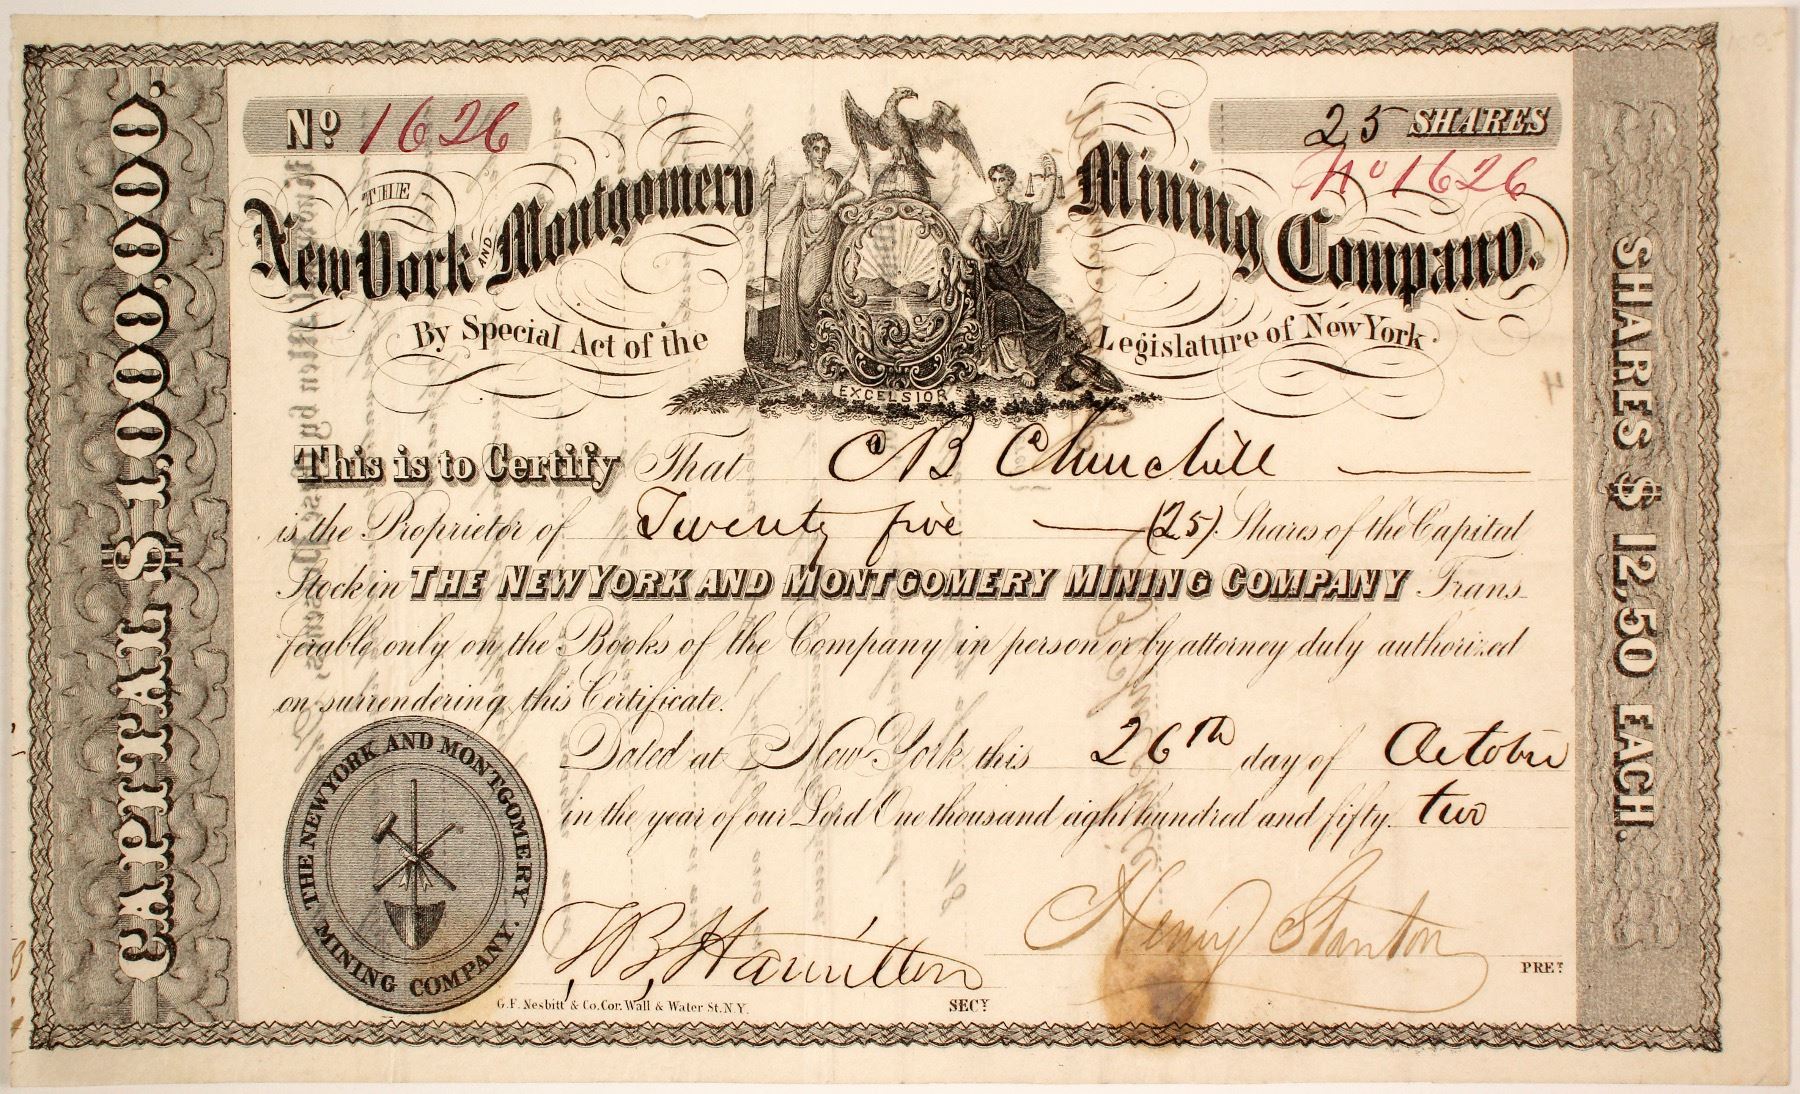 No. 1626
25 SHARES
No 1626
THE
New York AND Montgomery Mining Company.
By Special Act of the Legislature of New York.
EXCELSIOR
This is to Certify That C B Churchill
is the Proprietor of Twenty five (25) Shares of the Capital
Stock in THE NEW YORK AND MONTGOMERY MINING COMPANY Trans
ferable only on the Books of the Company in person or by attorney duly authorized
on surrendering this Certificate.
Dated at New York this 26th day of October
in the year of our Lord One thousand eight hundred and fifty two
THE NEW YORK AND MONTGOMERY MINING COMPANY.
Henry Stanton
PREST
Hamilton
SECY
G.F. Nesbitt & Co. Cor. Wall & Water St. N.Y.
CAPITAL $1,000,000.
SHARES $12,50 EACH.